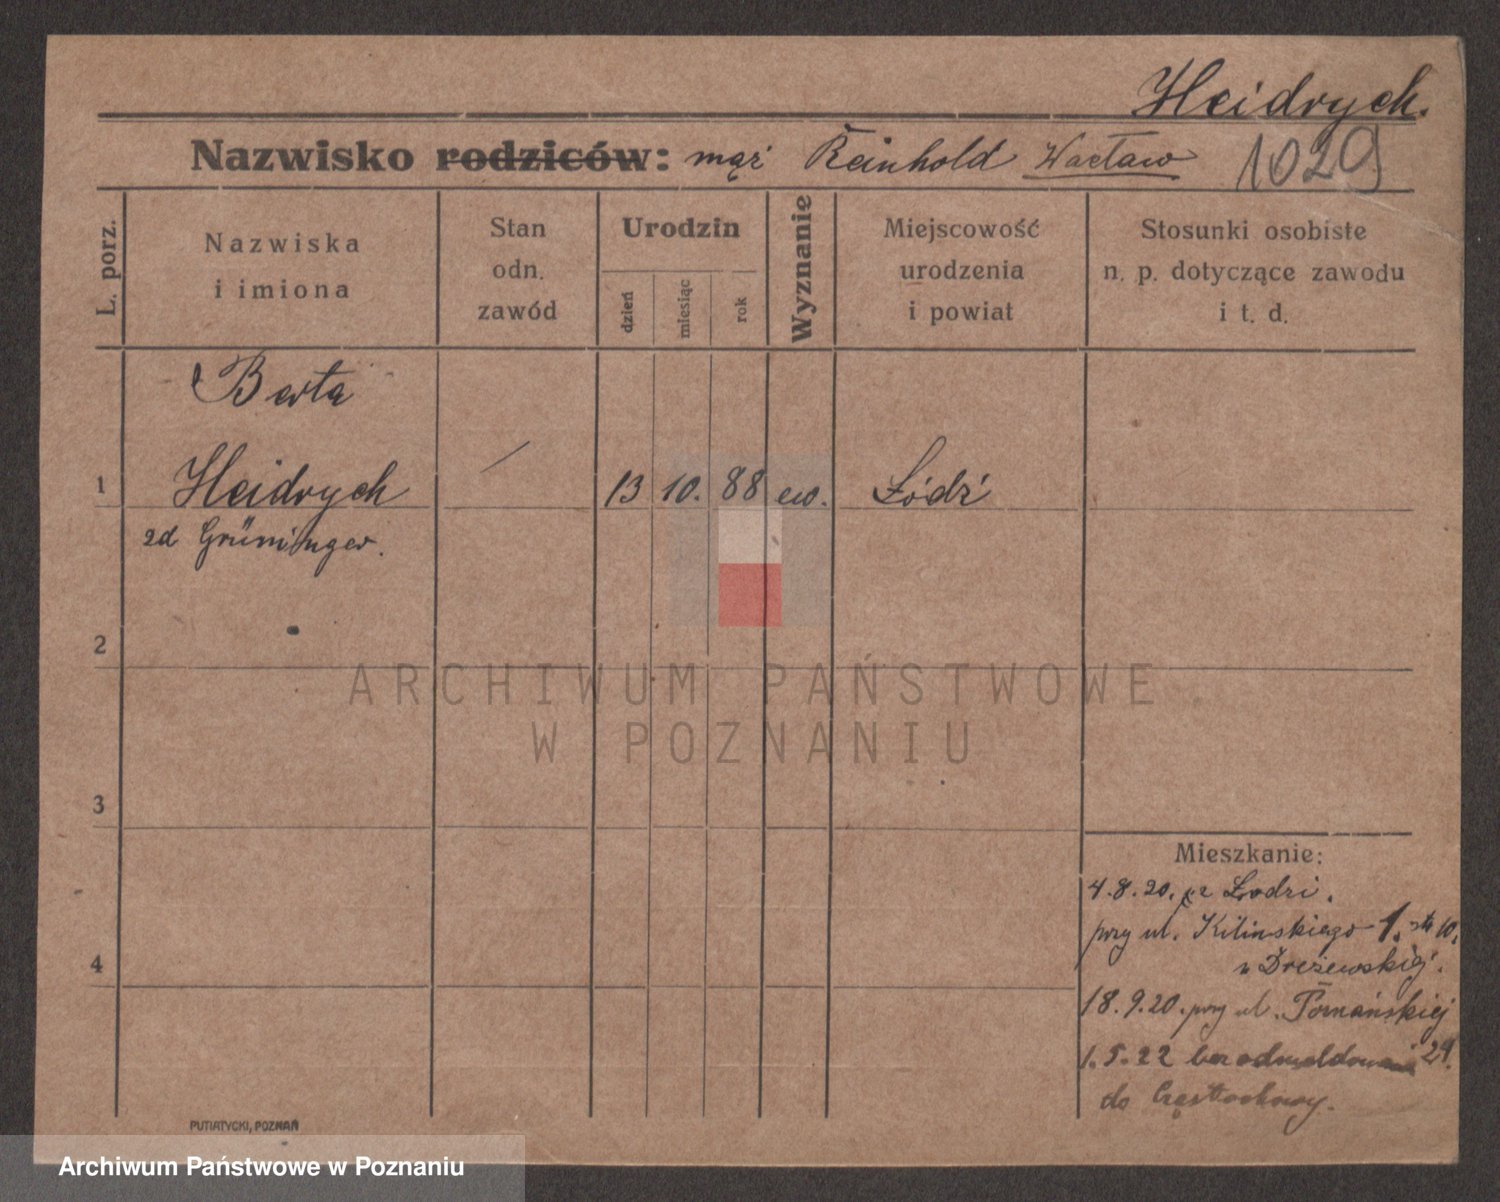 Heidrych.
Nazwisko rodziców: mąż Reinhold Wacław 1029
L. porz.
Nazwiska
i imiona
Stan
odn.
zawód
Urodzin
dzień
miesiąc
rok
Wyznanie
Miejscowość
urodzenia
i powiat
Stosunki osobiste
n. p. dotyczące zawodu
i t. d.
Berta
1 Heidrych / 13 10. 88 ew. Łódź
zd Grüninger.
2
3
4
Mieszkanie:
4.8.20. z Łodzi.
przy ul. Kilinskiego 1. 10.
18.9.20. przy ul. Poznańskiej
1.5.22 bez odmeldowania 24.
do Częstochowy.
PUTIATYCKI, POZNAŃ
ARCHIWUM PAŃSTWOWE
W POZNANIU
Archiwum Państwowe w Poznaniu